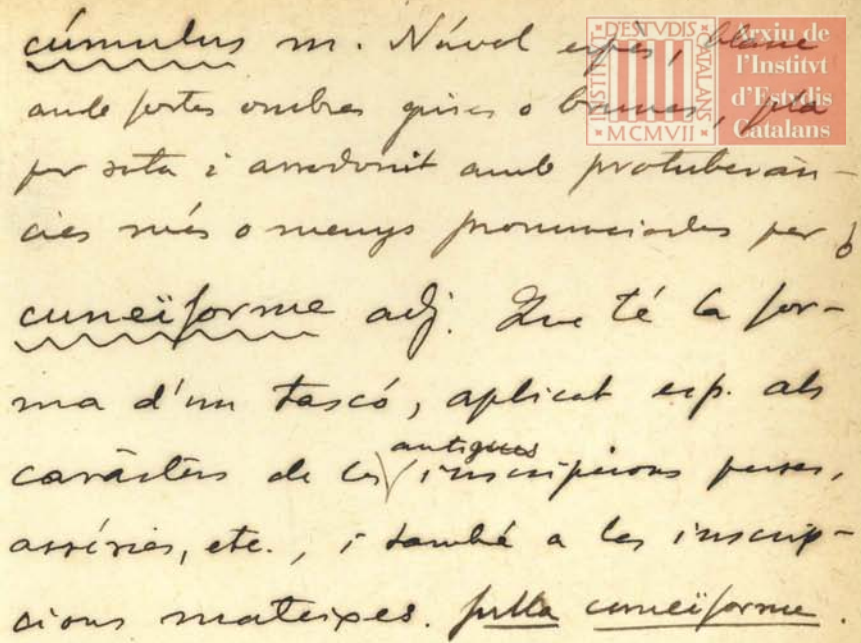 cúmulus m. Núvol espès, blanc
amb fortes ombres grises o brunes, pla
per sota i arrodonit amb protuberàn-
cies més o menys pronunciades per
cuneïforme adj. Que té la for-
ma d'un tascó, aplicat esp. als
caràcters de les antigues inscripcions perses,
assíries, etc., i també a les inscrip-
cions mateixes. fulla cuneïforme.
INSTITVT D'ESTVDIS CATALANS
MCMVII
Arxiu de
l'Institvt
d'Estvdis
Catalans